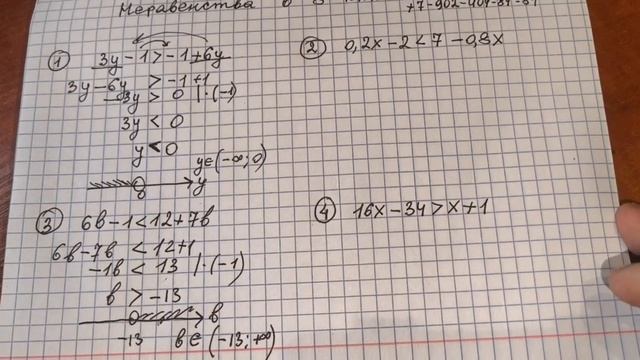 Неравенства
① 3y - 1 > -1 + 6y
3y - 6y > -1 + 1
-3y > 0 | · (-1)
3y < 0
y < 0
y ∈ (-∞; 0)
0 y
② 0,2x - 2 < 7 - 0,8x
③ 6b - 1 < 12 + 7b
6b - 7b < 12 + 1
-1b < 13 | · (-1)
b > -13
b
-13 b ∈ (-13; +∞)
④ 16x - 34 > x + 1